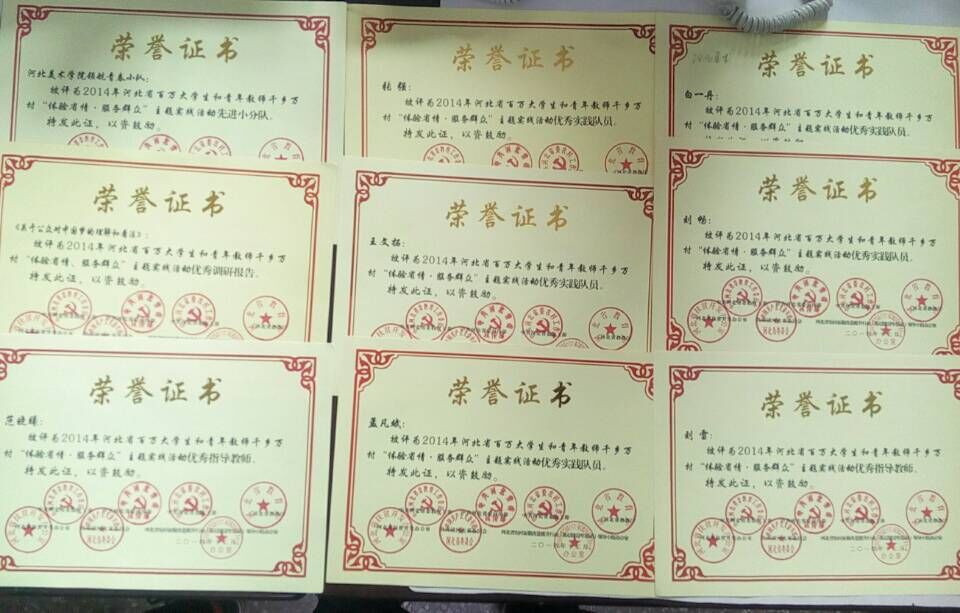 荣誉证书
河北美术学院领航青春小队:
被评为2014年河北省百万大学生和青年教师千乡万
村“体验省情·服务群众”主题实践活动先进小分队.
特发此证，以资鼓励。
荣誉证书
张 强:
被评为2014年河北省百万大学生和青年教师千乡万
村“体验省情·服务群众”主题实践活动优秀实践队员.
特发此证，以资鼓励。
荣誉证书
白一丹:
被评为2014年河北省百万大学生和青年教师千乡万
村“体验省情·服务群众”主题实践活动优秀实践队员.
荣誉证书
《基于公众对中国梦的理解和看法》:
被评为2014年河北省百万大学生和青年教师千乡万
村“体验省情、服务群众”主题实践活动优秀调研报告.
特发此证，以资鼓励。
荣誉证书
王文拓:
被评为2014年河北省百万大学生和青年教师千乡万
村“体验省情·服务群众”主题实践活动优秀实践队员.
特发此证，以资鼓励。
荣誉证书
刘 畅:
被评为2014年河北省百万大学生和青年教师千乡万
村“体验省情·服务群众”主题实践活动优秀实践队员.
特发此证，以资鼓励。
二〇一
办公室
荣誉证书
被评为2014年河北省百万大学生和青年教师千乡万
村“体验省情·服务群众”主题实践活动优秀指导教师.
特发此证，以资鼓励。
二〇一
荣誉证书
孟凡斌:
被评为2014年河北省百万大学生和青年教师千乡万
村“体验省情·服务群众”主题实践活动优秀实践队员.
特发此证，以资鼓励。
二〇一
办公室
荣誉证书
刘 雷:
被评为2014年河北省百万大学生和青年教师千乡万
村“体验省情·服务群众”主题实践活动优秀指导教师.
特发此证，以资鼓励。
二〇一
办公室